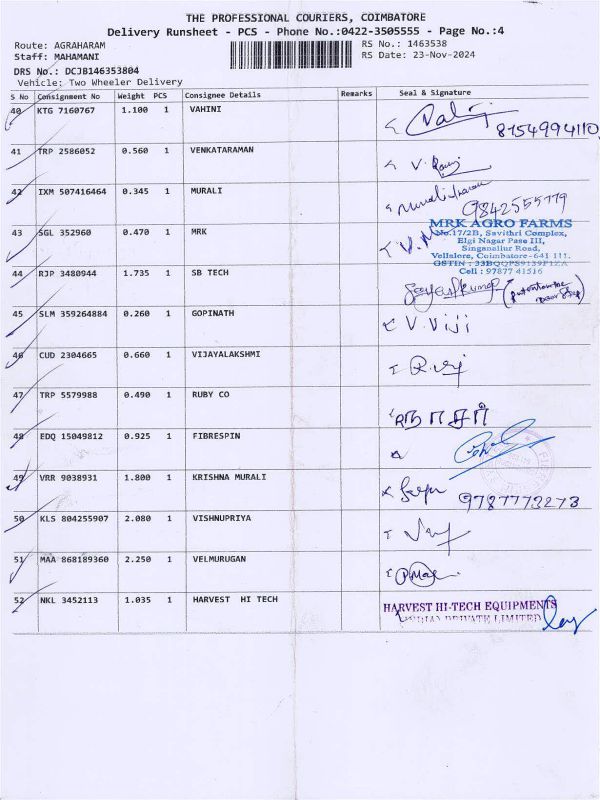 THE PROFESSIONAL COURIERS, COIMBATORE
Delivery Runsheet - PCS - Phone No.:0422-3505555 - Page No.:4
Route: AGRAHARAM RS No.: 1463538
Staff: MAHAMANI RS Date: 23-Nov-2024
DRS No.: DCJB146353804
Vehicle: Two Wheeler Delivery
S No Consignment No Weight PCS Consignee Details Remarks Seal & Signature
40 KTG 7160767 1.100 1 VAHINI
8154994110
41 TRP 2586052 0.560 1 VENKATARAMAN
42 IXM 507416464 0.345 1 MURALI
9842555779
43 SGL 352960 0.470 1 MRK
MRK AGRO FARMS
No.17/2B, Savithri Complex,
Elgi Nagar Pase III,
Singanallur Road,
Vellalore, Coimbatore-641 111.
Cell : 97877 41516
44 RJP 3480944 1.735 1 SB TECH
45 SLM 359264884 0.260 1 GOPINATH V.Viji
46 CUD 2304665 0.660 1 VIJAYALAKSHMI
47 TRP 5579988 0.490 1 RUBY CO
48 EDQ 15049812 0.925 1 FIBRESPIN
49 VRR 9038931 1.800 1 KRISHNA MURALI
9787773273
50 KLS 804255907 2.080 1 VISHNUPRIYA
51 MAA 868189360 2.250 1 VELMURUGAN
52 NKL 3452113 1.035 1 HARVEST HI TECH
HARVEST HI-TECH EQUIPMENTS
(INDIA) PRIVATE LIMITED